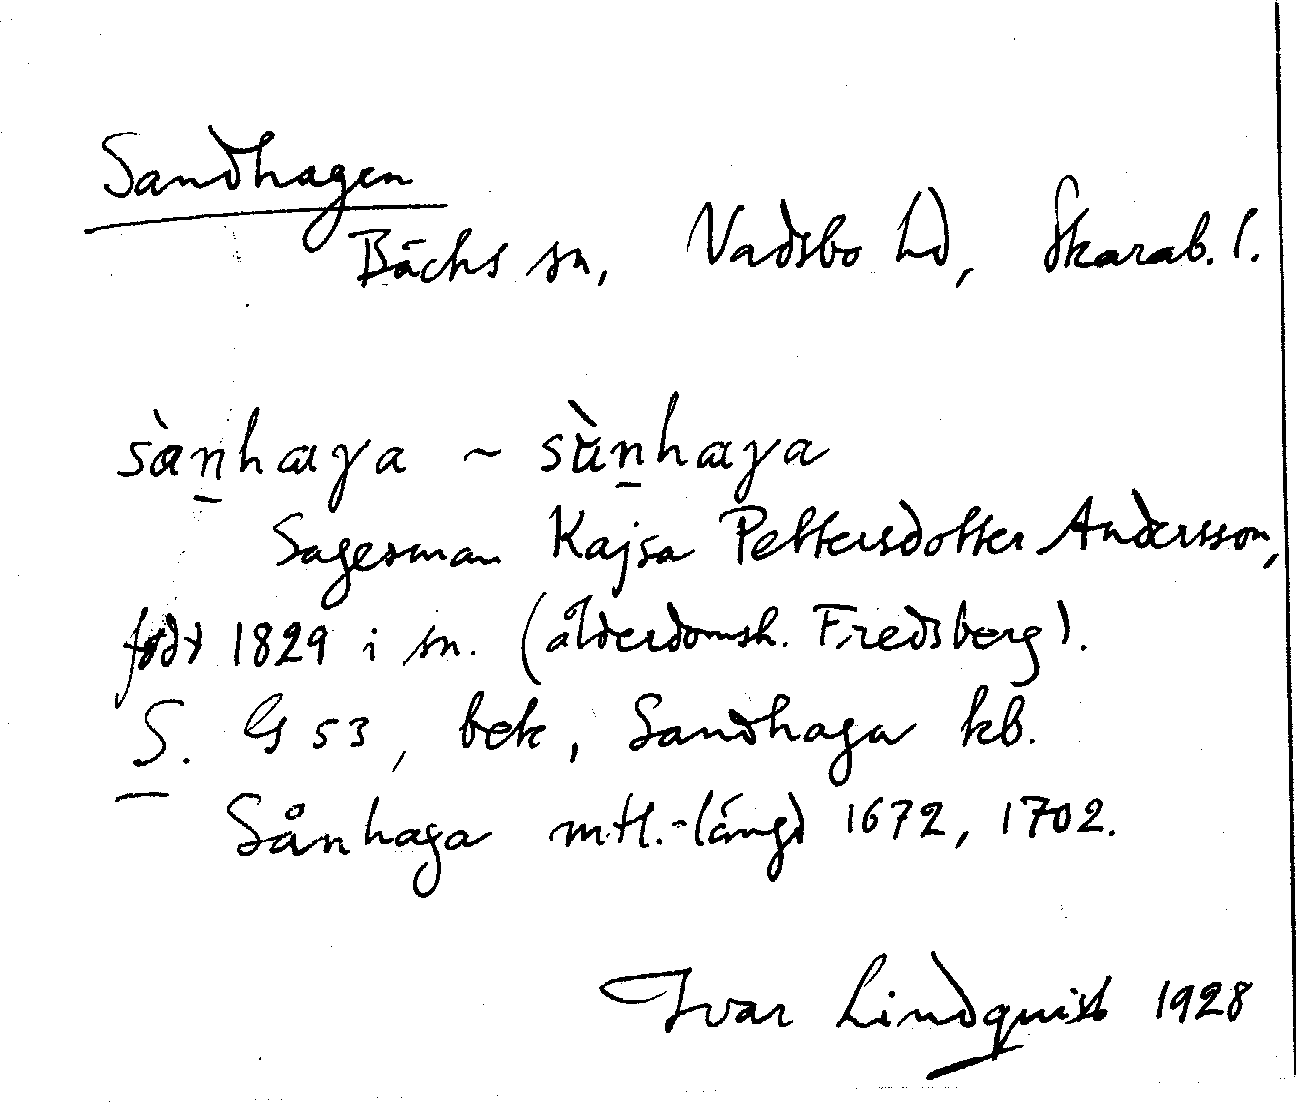 Sandhagen
Bäcks sn, Vadsbo hd, Skarab. l.
sàn̲haγa ~ sàn̲haγa
Sagesman Kajsa Pettersdotter Andersson,
född 1829 i sn. (ålderdomsh. Fredsberg).
S. G 53, bek, Sandhaga kb.
Sånhaga mtl.-längd 1672, 1702.
Ivar Lindquist 1928